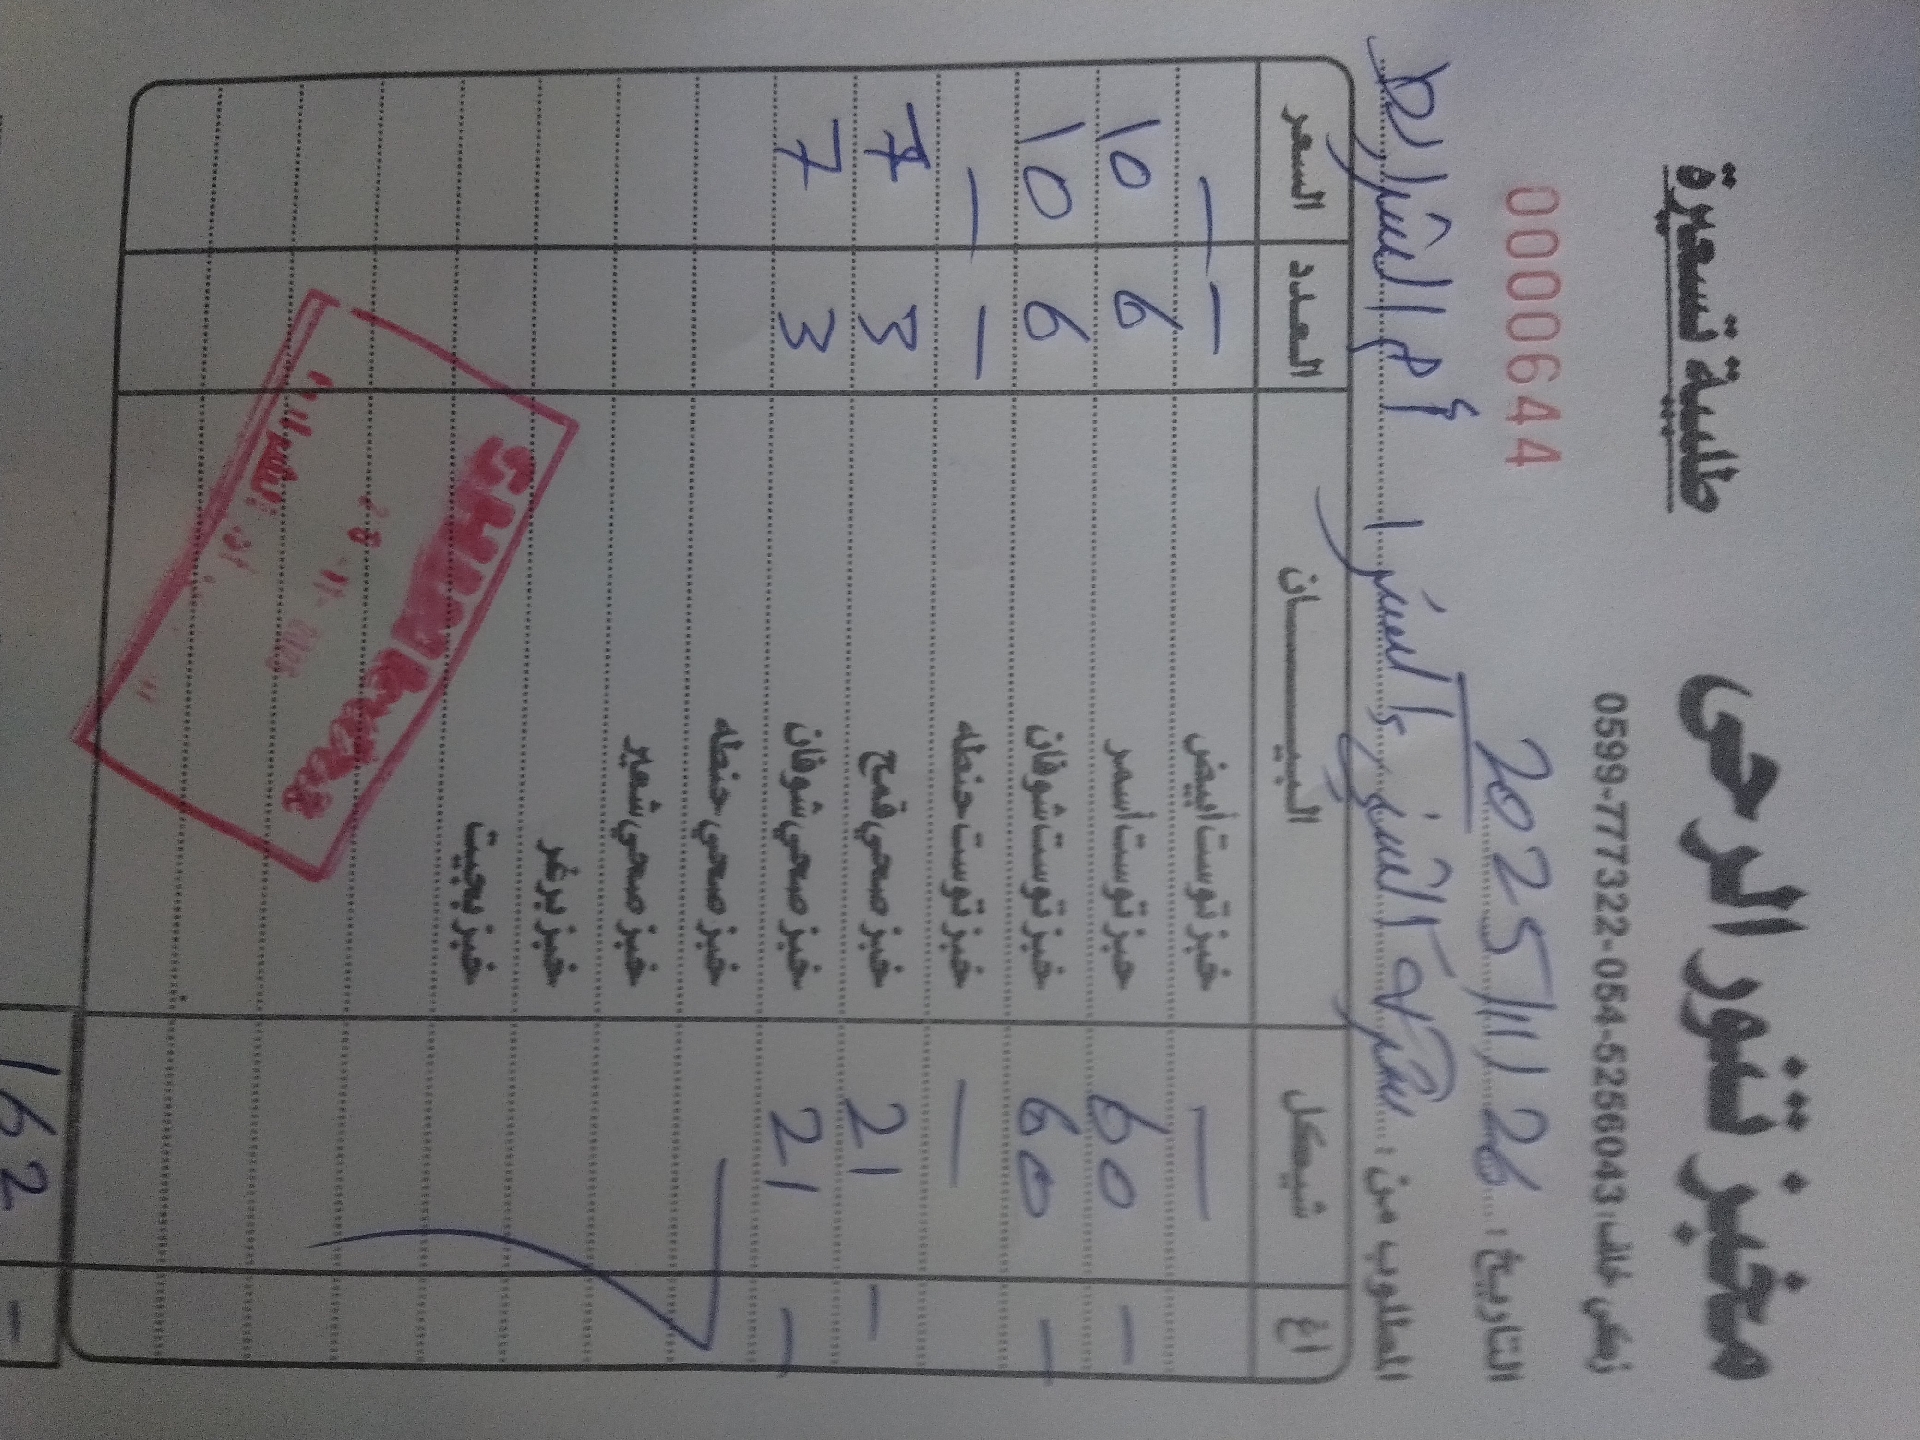 مخبز تنور الرحى
طلبية تسعيرة
زكي خلف: 0599-777322-054-5256043
التاريخ: 2025/11/26
0000644
المطلوب من: شركة
أم الشرايط
اغ شيكل البيـــــان العدد السعر
— خبز توست أبيض — —
— 60 خبز توست أسمر 6 10
— 60 خبز توست شوفان 6 10
— خبز توست حنطه — —
— 21 خبز صحي قمح 3 7
— 21 خبز صحي شوفان 3 7
خبز صحي حنطه
خبز صحي شعير
خبز برغر
خبز بجيت
162 —